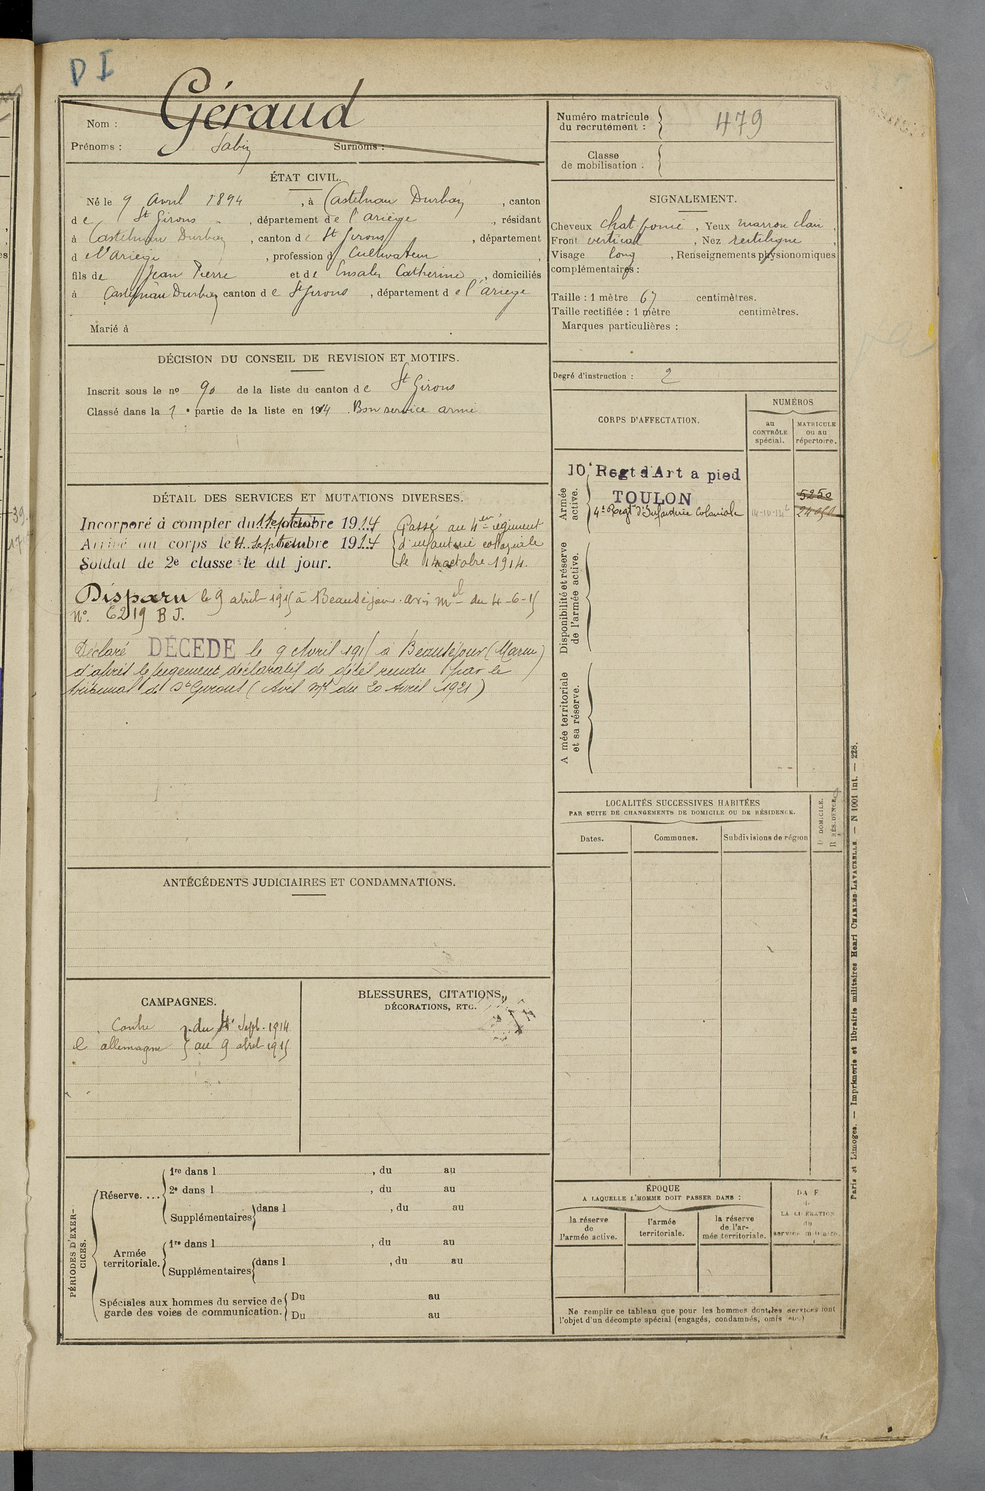 D I
Nom : Géraud
Prénoms : Sabin Surnoms :
ÉTAT CIVIL.
Né le 9 avril 1894, à Castelnau Durban, canton
de St Girons, département de l'ariège, résidant
à Castelnau Durban, canton de St Girons, département
de l'Ariège, profession de Cultivateur
fils de Jean Pierre et de Catherine, domiciliés
à Castelnau Durban canton de St Girons, département de l'ariège
Marié à
DÉCISION DU CONSEIL DE REVISION ET MOTIFS.
Inscrit sous le no 90 de la liste du canton de St Girons
Classé dans la 1e partie de la liste en 1914. Bon service armé
DÉTAIL DES SERVICES ET MUTATIONS DIVERSES.
Incorporé à compter du Septembre 1914
Arrivé au corps le septembre 1914
Soldat de 2e classe le dit jour.
Passé au 4en régiment
d'infanterie coloniale
le octobre 1914.
Disparu le 9 abril 1915 à Beauséjour. avis mel du 4-6-15
No. E219 B J.
Déclaré DÉCÉDÉ le 9 Avril 1915 à Beauséjour (Marne)
d'après le jugement déclaratif de décès rendu par le
tribunal de St Girons (Avis Mel du 20 Avril 1921)
ANTÉCÉDENTS JUDICIAIRES ET CONDAMNATIONS.
CAMPAGNES.
Contre du Sept. 1914
l'allemagne au 9 abril 1915
BLESSURES, CITATIONS,
DÉCORATIONS, ETC.
PÉRIODES D'EXERCICES.
Réserve....
1re dans l , du au
2e dans l , du au
Supplémentaires dans l , du au
Armée territoriale.
1re dans l , du au
Supplémentaires dans l , du au
Spéciales aux hommes du service de garde des voies de communication.
Du au
Du au
Numéro matricule
du recrutement : 479
Classe
de mobilisation :
SIGNALEMENT.
Cheveux chat foncé, Yeux marron clair,
Front vertical, Nez rectiligne,
Visage long, Renseignements physionomiques
complémentaires :
Taille : 1 mètre 67 centimètres.
Taille rectifiée : 1 mètre centimètres.
Marques particulières :
Degré d'instruction : 2
CORPS D'AFFECTATION.
NUMÉROS
au
CONTRÔLE
spécial.
MATRICULE
ou au
répertoire.
Armée
active.
10e Regt d'Art a pied
TOULON 5250
4e Regt d'Infanterie Coloniale
Disponibilité et réserve
de l'armée active.
Armée territoriale
et sa réserve.
LOCALITÉS SUCCESSIVES HABITÉES
PAR SUITE DE CHANGEMENTS DE DOMICILE OU DE RÉSIDENCE.
Dates. Communes. Subdivisions de région
D. DOMICILE.
R. RÉSIDENCE.
ÉPOQUE
A LAQUELLE L'HOMME DOIT PASSER DANS :
la réserve
de
l'armée active.
l'armée
territoriale.
la réserve
de l'ar-
mée territoriale.
DATE
de
LA LIBÉRATION
du
service militaire.
Ne remplir ce tableau que pour les hommes dont les services font
l'objet d'un décompte spécial (engagés, condamnés, omis etc.)
Paris et Limoges. — Imprimerie et librairie militaires Henri CHARLES-LAVAUZELLE. — N 1001 int. — 228.